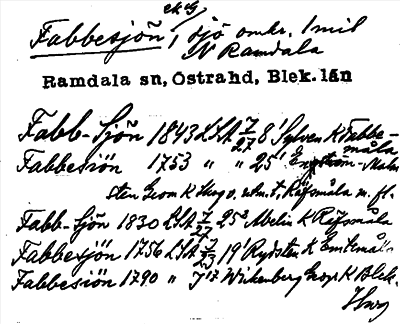 ekG
Fabbesjön, sjö omkr. 1 mil
N Ramdala
Ramdala sn, Östrahd, Blek. län
Fabb-Sjön 1843 LSA 7/27 8' Sylven K Fabbe-
måla
Fabbesiön 1753 " " 25' Engström
sten Geom K
Fabb-Sjön 1830 LSA 7/27 25² Abelin K Röfsmåla
Fabbesjön 1756 LSA 7/23 19' Rydsten K
Fabbesiön 1790 " J 17 Wirkenberg Geogr K Blek.